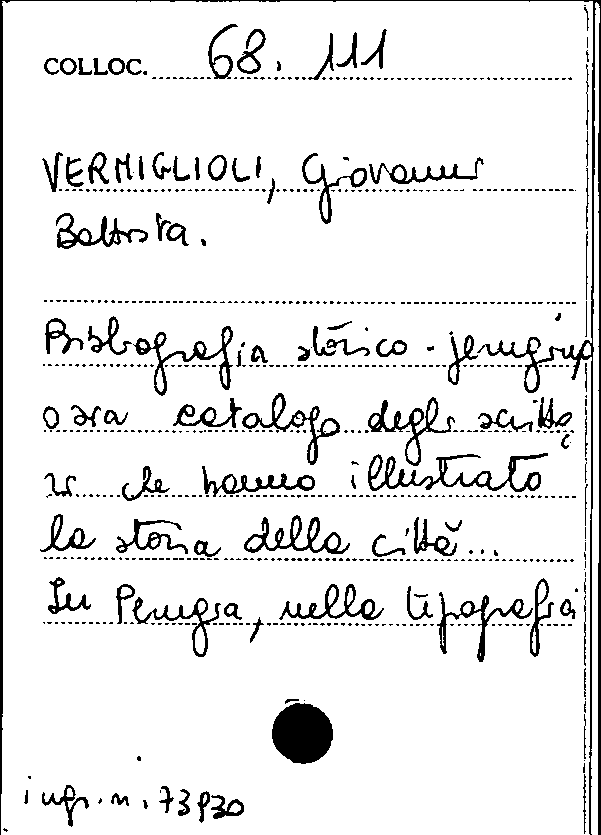 COLLOC. 68. 111
VERMIGLIOLI, Giovanni
Battista.
Bibliografia storico-perugina
ossia catalogo degli scritto
ri che hanno illustrato
la storia della città...
In Perugia, nella tipografia
ingr. n. 73930